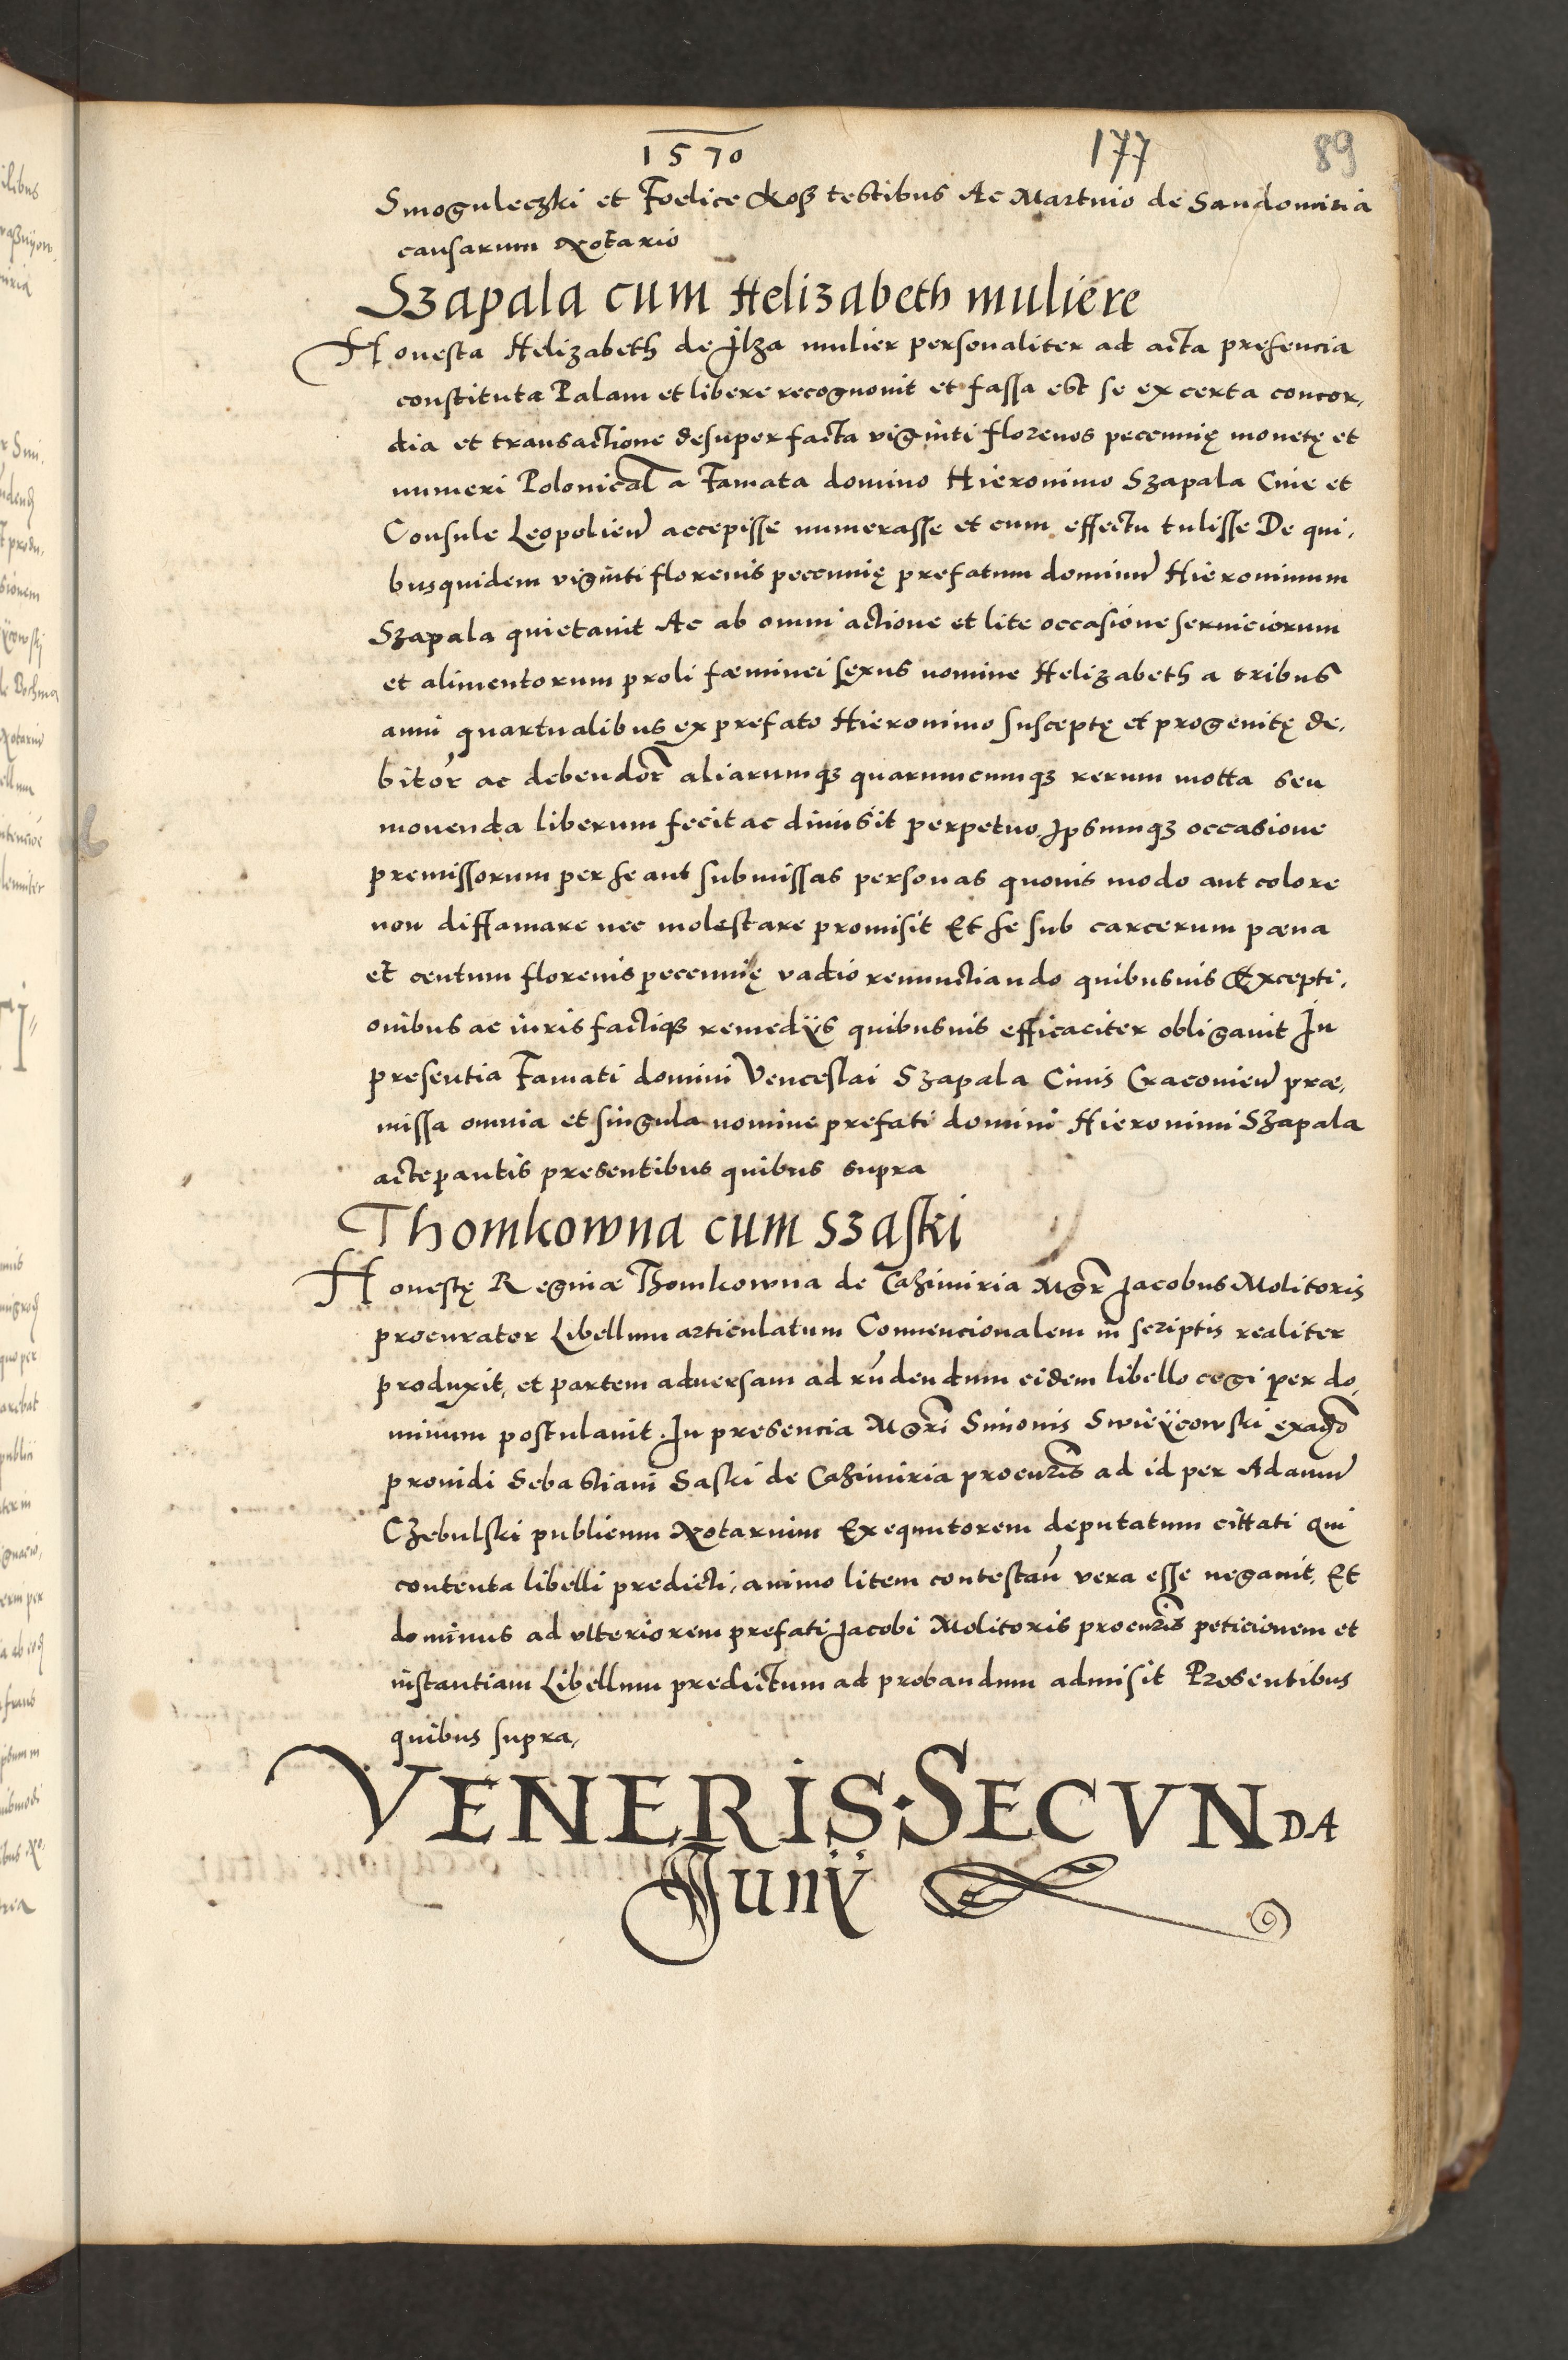 1570 177 89
Smoguleczki et Foelice Koß testibus Ac Martino de Sandomiria
causarum Notario
Szapala cum Helizabeth muliere
Honesta Helizabeth de Jlza mulier personaliter ad acta presencia
constituta Palam et libere recognouit et fassa est se ex certa concor,
dia et transactione desuper facta viginti florenos pecennię monetę et
numeri Polonical a Famata domino Hieronimo Szapala Ciue et
Consule Leopolien accepisse numerasse et cum effectu tulisse De qui,
busquidem viginti florenis pecennię prefatum dominum Hieronimum
Szapala quietauit Ac ab omni actione et lite occasione seruiciorum
et alimentorum proli fæminei sexus nomine Helizabeth a tribus
anni quartualibus ex prefato Hieronimo susceptę et progenitę de,
bitor ac debendor aliarumqȝ quarumcumqȝ rerum motta seu
mouenda liberum fecit ac dimisit perpetuo Jpsumqȝ occasione
premissorum per se aut submissas personas quouis modo aut colore
non diffamare nec molestare promisit Et se sub carcerum pæna
et centum florenis pecennię vadio renunctiando quibusuis Excepti,
onibus ac iuris factiqȝ remedijs quibusuis efficaciter obligauit Jn
presentia Famati domini Venceslai Szapala Ciuis Cracouien præ,
missa omnia et singula nomine prefati domini Hieronimi Szapala
acteptantis presentibus quibus supra
Thomkowna cum Szaski
Honestę Reginæ Thomkowna de Cazimiria Mgr Jacobus Molitoris
procurator Libellum articulatum Conuencionalem in scriptis realiter
produxit, et partem aduersam ad rndendum eidem libello cogi per do,
minum postulauit. Jn presencia Mgri Simonis Swieÿcowski exaduerso
prouidi Sebastiani Saski de Cazimiria procuris ad id per Adamum
Czebulski publicum Notarium Exequutorem deputatum cittati qui
contenta libelli predicti, animo litem contestan vera esse negauit, Et
dominus ad vlteriorem prefati Jacobi Molitoris procuris peticionem et
instantiam Libellum predictum ad probandum admisit Presentibus
quibus supra,
VENERIS·SECVNDA
Junÿ